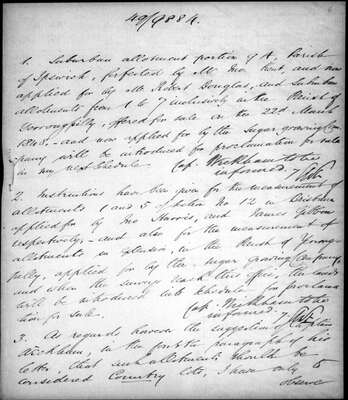 49/9884.
1. Suburban allotment portion 9 A, Parish
of Ipswich, forfeited by Mr Jno Kent, and now
applied for by Mr Robert Douglas, and Suburban
allotments from 1 to 7 inclusively in the Parish of
Yeerongpilly, offered for sale on the 22nd March
1843 - and now applied for by the Sugar growing Com-
pany will be introduced for proclamation for sale
in my next schedule. Cap. Wickham to be
informed.
2. Instructions have been given for the measurement of
allotments 1 and 5 of section No 12 in Brisbane
applied for by Jno Harris, and James Gibbon
respectively, - and also for the measurement of
allotments in extension in the Parish of Yeerong-
pilly, applied for by the Sugar growing Company,
and when the surveys reach this office, the lands
will be introduced into schedule for proclama-
tion for sale. Cap Wickham to be
informed.
3. As regards however the suggestion of Captain
Wickham, in the paragraph of his
letter, that such allotments should be
considered Country lots, I have only to
observe